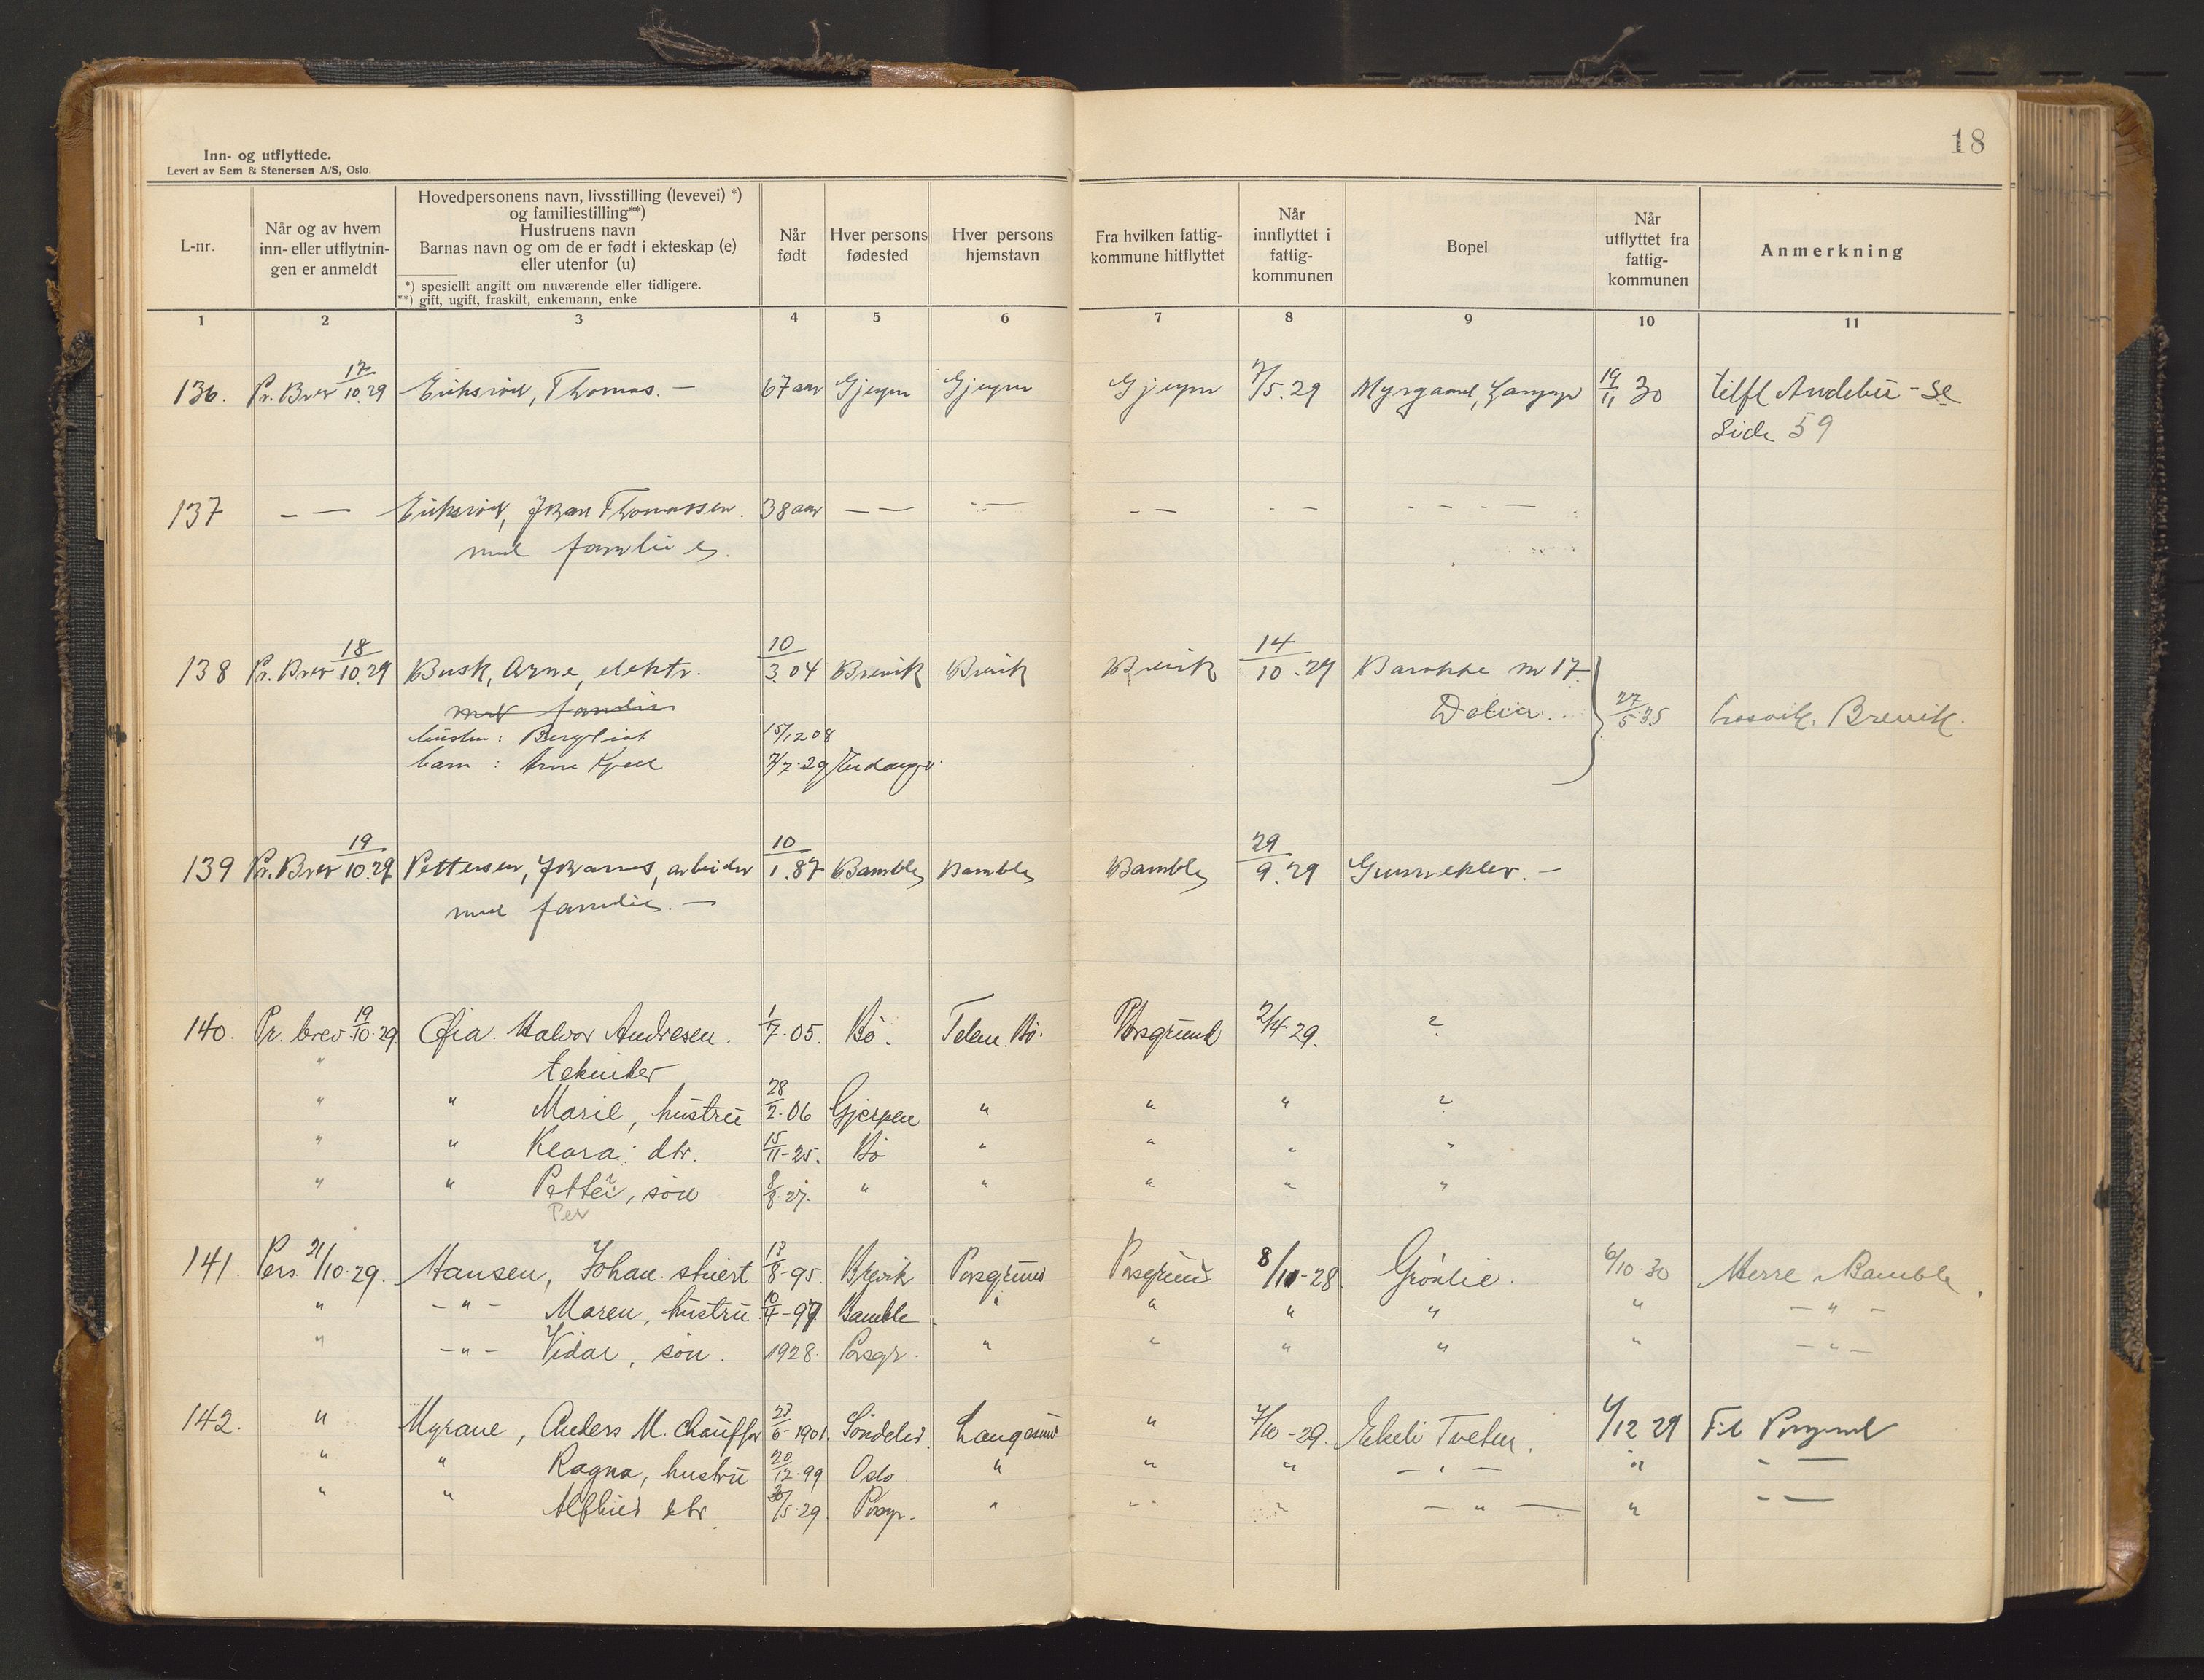 18
Inn- og utflyttede.
Levert av Sem & Stenersen A/S, Oslo.
L-nr.
Når og av hvem inn- eller utflytnin- gen er anmeldt
Hovedpersonens navn, livsstilling (levevei) *)
og familiestilling**)
Hustruens navn
Barnas navn og om de er født i ekteskap (e)
eller utenfor (u)
*) spesiellt angitt om nuværende eller tidligere.
**) gift, ugift, fraskilt, enkemann, enke
Når født
Hver persons fødested
Hver persons hjemstavn
Fra hvilken fattig- kommune hitflyttet
Når innflyttet i fattig- kommunen
Bopel
Når utflyttet fra fattig- kommunen
Anmerkning
1 2 3 4 5 6 7 8 9 10 11
136. Pr. Brev 17/10.29 Eriksrød, Thomas. — 67 aar Gjerpen Gjerpen Gjerpen 7/5.29 Myrgaard, 19/11 30 tilfl Andebu - se
Side 59
137 — — Eriksrød, Johan Thomassen. 38 aar — — — — — — — — — —
med familie
138 Pr. Brev 18/10.29 Busk, Arne, elektr. 10/3.04 Brevik Brevik Brevik 14/10.29 Barakke nr 17.
med familie 27/5.35 Brevik.
hustru: Bergliot 15/12 08
barn: Arne Kjell 7/7.29
139 Pr. Brev 19/10.29 Pettersen, Johannes, arbeider 10/1.87 Bamble Bamble Bamble 29/9.29 Gunneklev. —
med familie. —
140. Pr. brev 19/10.29 Halvor Andresen. 1/7.05. Bö. Telem. Bö. Porsgrund 2/4.29. ?
" tekniker
" " Marie, hustru 28/2.06 Gjerpen " " " ?
" " Klara: dtr. 15/11-25. Bö " " " "
" " Petter, sön 8/8.27. " " " " "
Per
141. Pers. 21/10.29. Hansen, Johan. stuert 13/8-95. Brevik Porsgrund Porsgrund 8/10-28 Grönlie. 6/10.30 Herre Bamble
" - " - Maren, hustru 10/4-97 Bamble " " " " " - " -
" - " - Vidar, sön. 1928. Porsgr. " " " " " - " -
142. " Myrane, Anders M. chauffør 23/6-1901. Söndeled. Langesund " 7/10-29. Ekeli Tveten. 4/12 29 Til Porsgrund
" " Ragna, hustru 20/12.99 Oslo " " " - " - " - —
" " Alfhild dtr. 30/5.29 Porsgr. " " " - " — " - —